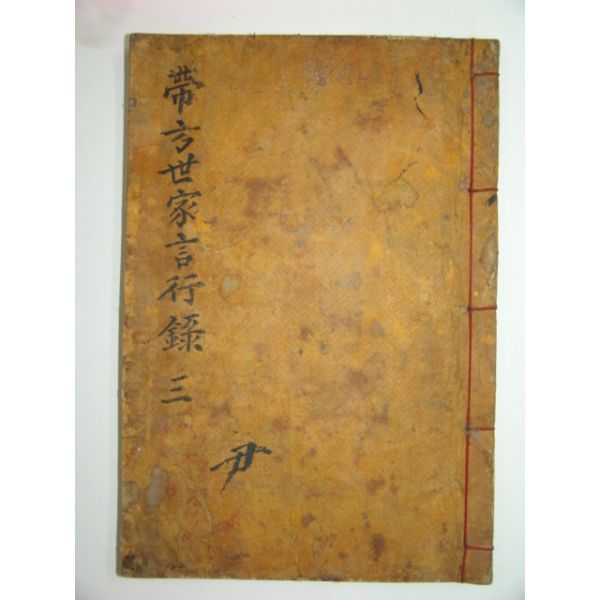 帶方世家言行錄 三
尹